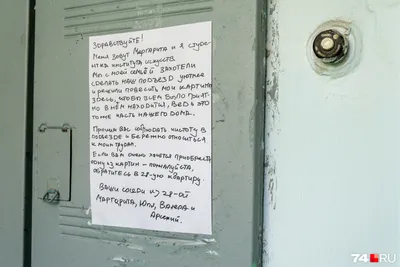 Здравствуйте!
Меня зовут Маргарита и я студе-
нтка института искусств.
Мы с моей семьёй захотели
сделать наш подъезд уютнее
и решили повесить мои картины
здесь, чтобы всем было приятно
в нём находиться, ведь это
тоже часть нашего дома.
Просим вас соблюдать чистоту в
подъезде и бережно относиться
к моим трудам.
Если вам очень хочется приобрести
одну из картин - пожалуйста,
обратитесь в 28-ую квартиру.
Ваши соседи из 28-ой
Маргарита, Юля, Валера и
Арсений.
74.RU